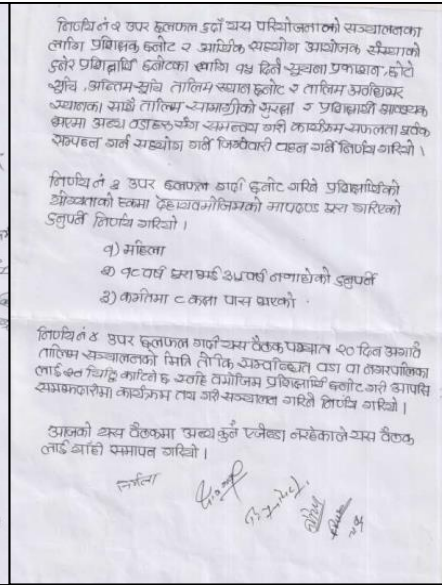 निर्णय नं २ उपर छलफल हुदाँ यस परियोजनाको सञ्चालनका
लागि प्रशिक्षक छनोट र आर्थिक सहयोग आयोजक संस्थाको
हुनेर प्रशिक्षार्थि छनोटका लागि १५ दिने सूचना प्रकाशन, छोटो
सूचि, अन्तिम सूचि तालिम स्थान छनोट र तालिम अवधिभर
स्थानका साथै तालिम सामाग्रीको सुरक्षा र प्रशिक्षार्थी आवश्यक
भएमा अन्य वडाहरुसँग समन्वय गरी कार्यक्रम सफलता पूर्वक
सम्पन्न गर्न सहयोग गर्ने जिम्मेवारी वहन गर्ने निर्णय गरियो ।
निर्णय नं ३ उपर छलफल गर्दा छनोट गरिने प्रशिक्षार्थिको
योग्यताको हकमा देहायबमोजिमको मापदण्ड पुरा गरिएको
हुनुपर्ने निर्णय गरियो ।
१) महिला
२) १८ वर्ष पुरा भई ३५ वर्ष ननाघेको हुनुपर्ने
३) कम्तिमा ८ कक्षा पास भएको ।
निर्णय नं ४ उपर छलफल गर्दा यस बैठक पश्चात २० दिन अगावै
तालिम सञ्चालनको मिति तोकि सम्वन्धित वडा वा नगरपालिका
लाई चिठ्ठि काटिने छ सोहि वमोजिम प्रशिक्षार्थि छनोट गरी आपसि
समझदारीमा कार्यक्रम तय गरी सञ्चालन गरिने निर्णय गरियो ।
आजको यस बैठकमा अन्य कुनै एजेन्डा नरहेकाले यस बैठक
लाई यहाँ समापन गरियो ।
निर्मला